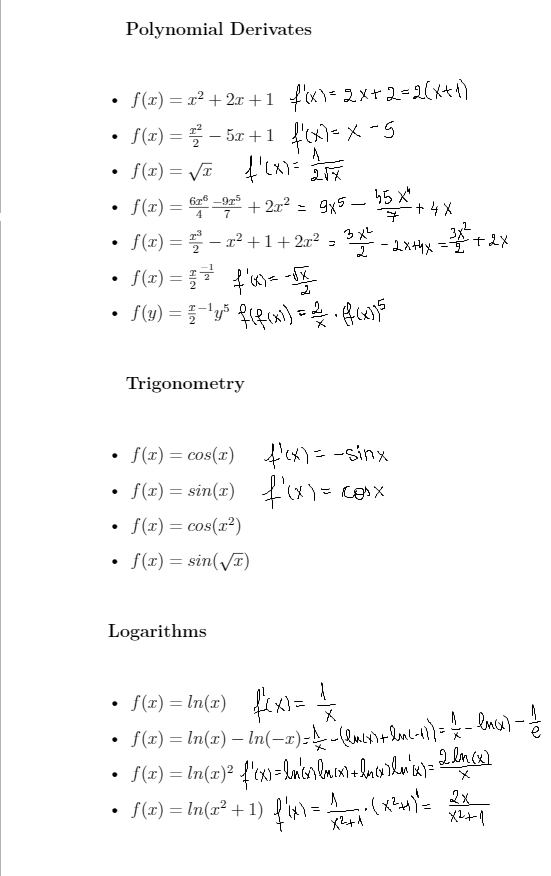 Polynomial Derivates
• f(x) = x² + 2x + 1 f'(x) = 2x + 2 = 2(x+1)
• f(x) = x²/2 − 5x + 1 f'(x) = x − 5
• f(x) = √x f'(x) = 1/(2√x)
• f(x) = 6x⁶/4 −9x⁵/7 + 2x² = 9x⁵ − 45x⁴/7 + 4x
• f(x) = x³/2 − x² + 1 + 2x² = 3x²/2 − 2x+4x = 3x²/2 + 2x
• f(x) = x/2^(−1/2) f'(x) = −√x/2
• f(y) = x/2⁻¹y⁵ f(f(x)) = 2/x · (f(x))⁵
Trigonometry
• f(x) = cos(x) f'(x) = −sinx
• f(x) = sin(x) f'(x) = cosx
• f(x) = cos(x²)
• f(x) = sin(√x)
Logarithms
• f(x) = ln(x) f'(x) = 1/x
• f(x) = ln(x) − ln(−x) = 1/x − (ln(x) + ln(−1)) = 1/x − ln(x) − 1/e
• f(x) = ln(x)² f'(x) = ln'(x) ln(x) + ln(x) ln'(x) = 2ln(x)/x
• f(x) = ln(x² + 1) f'(x) = 1/(x²+1) · (x²+1)' = 2x/(x²+1)